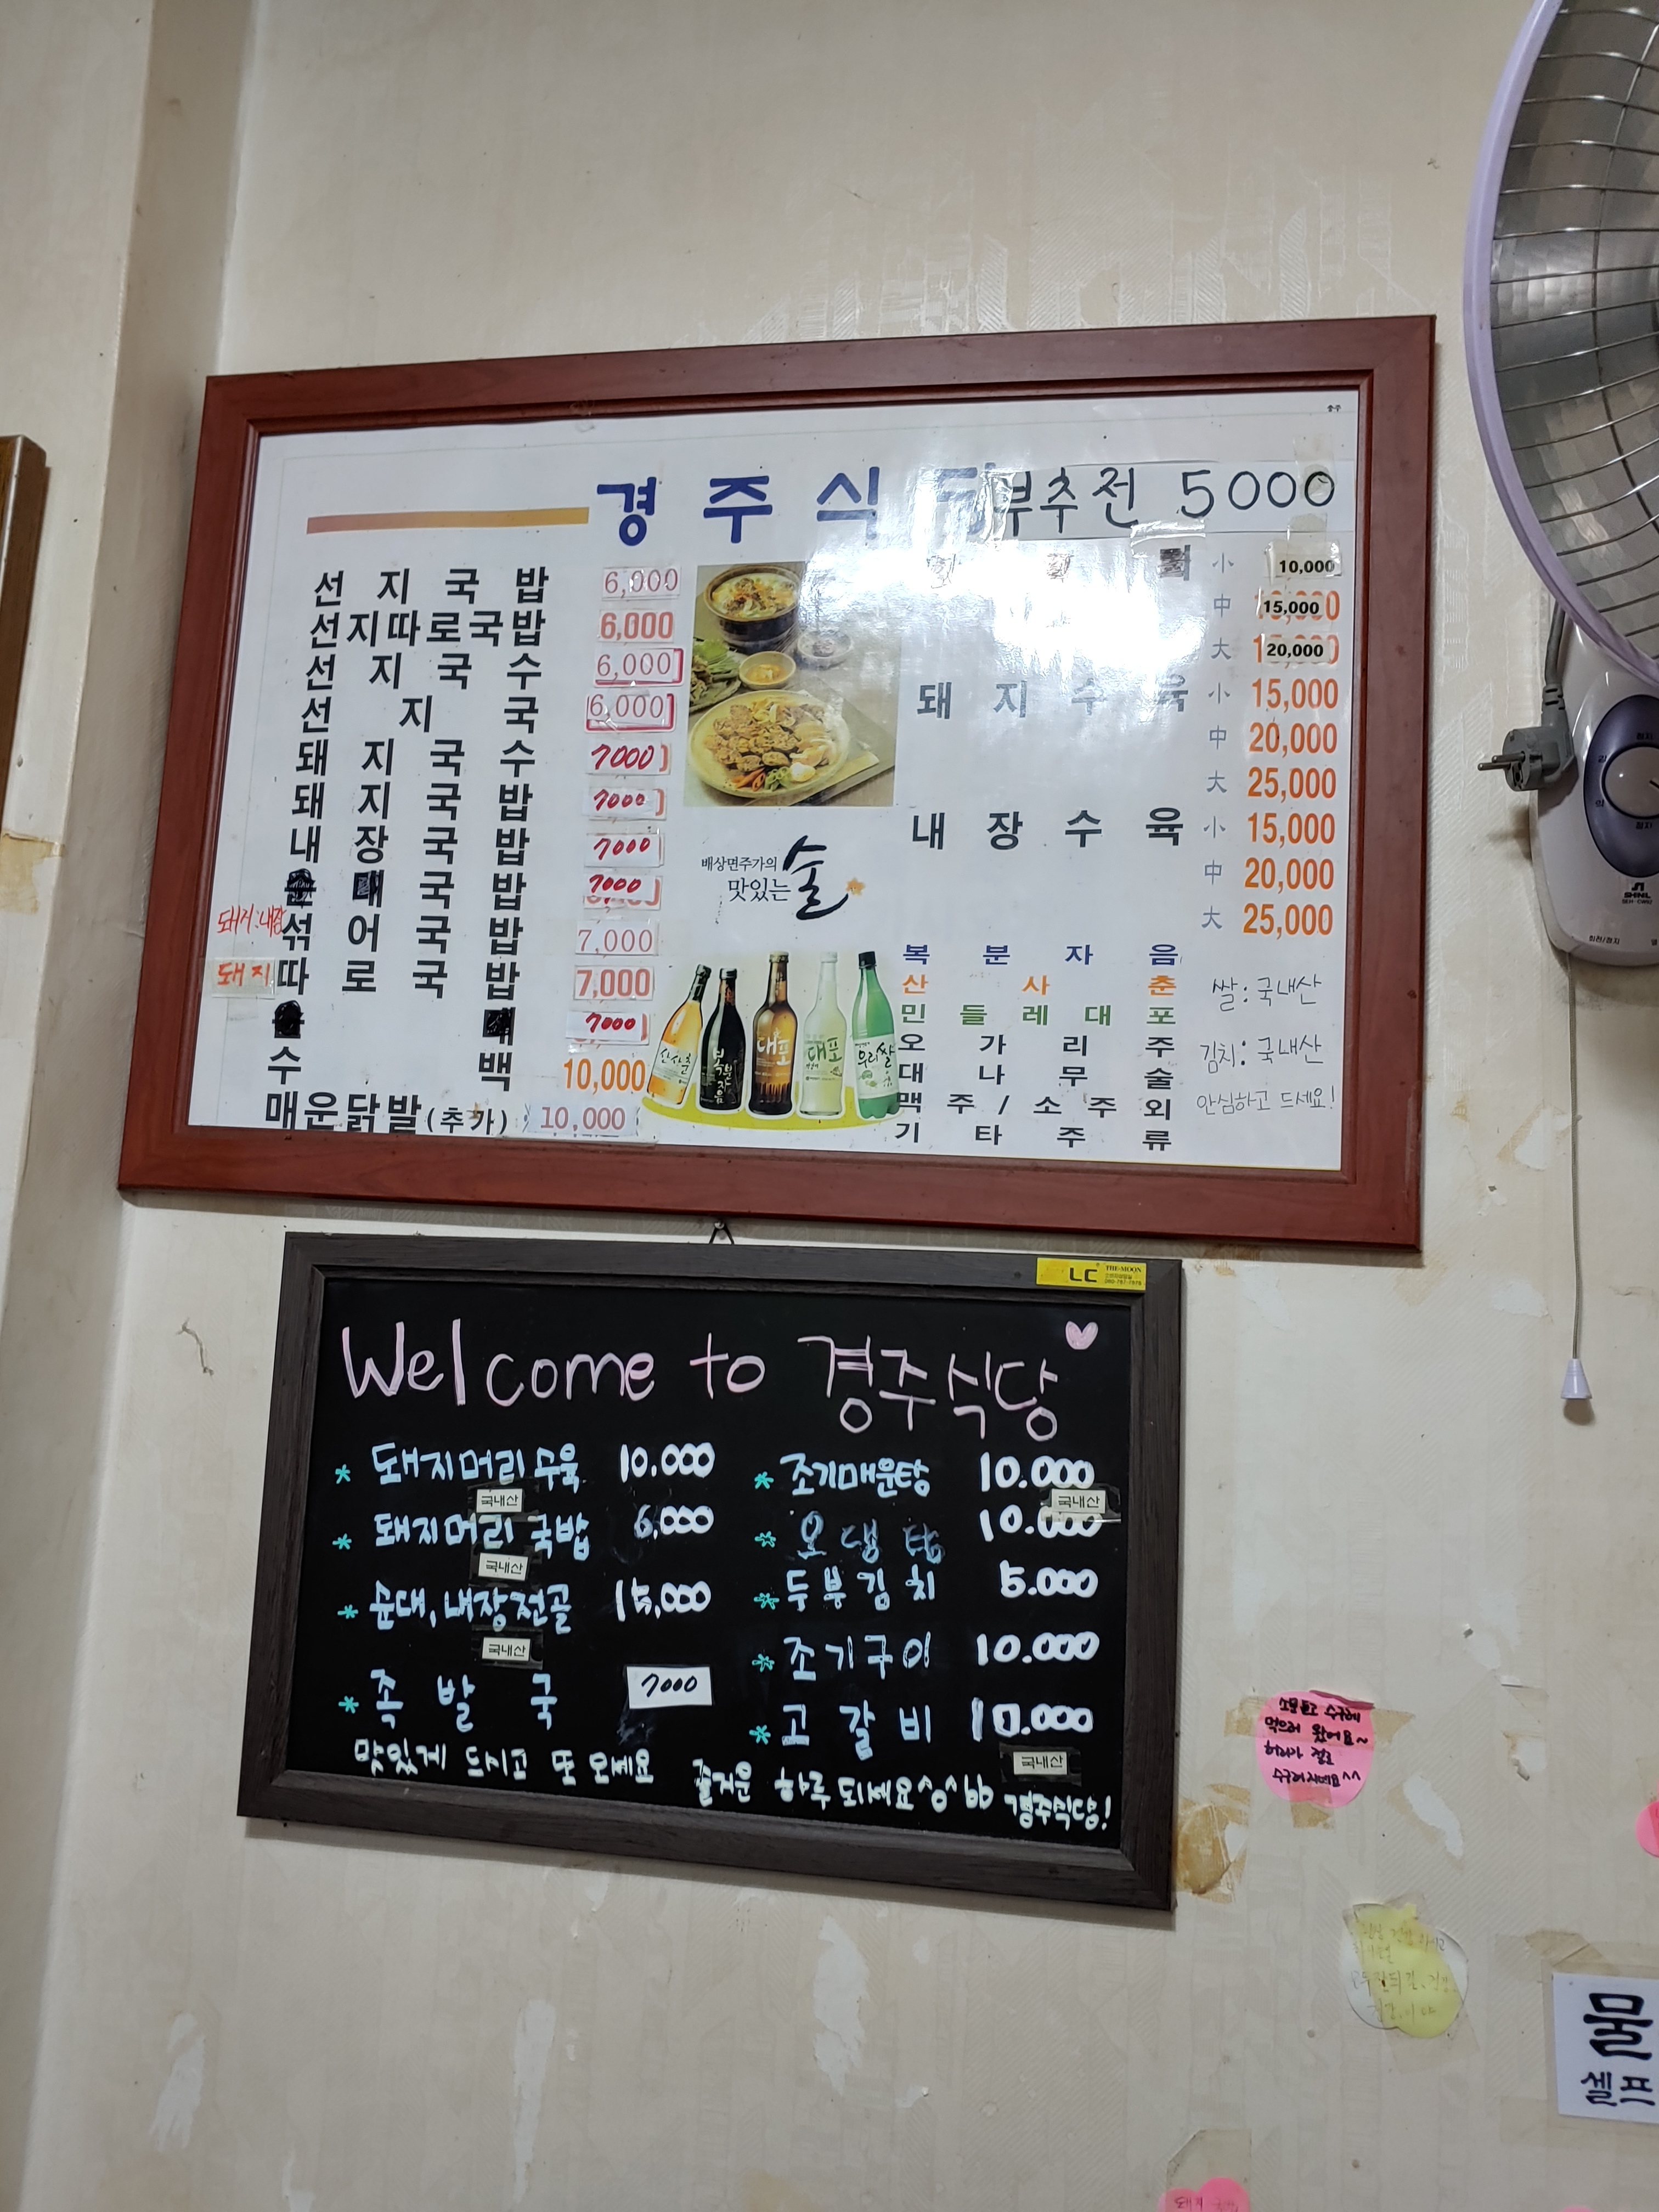 경주식
부추전 5000
선지국밥 6,000
선지따로국밥 6,000
선지국수 6,000
선지국 6,000
돼지국수 7000
돼지국밥 7000
내장국밥 7000
국밥 7000
돼지:내장 섞어국밥 7,000
돼지 따로국밥 7,000
7000
수백 10,000
매운닭발(추가) 10,000
배상면주가의
맛있는 술
산사춘
복분자음
대포
대포
우리쌀
小 10,000
中 15,000
大 20,000
돼지수육 小 15,000
中 20,000
大 25,000
내장수육 小 15,000
中 20,000
大 25,000
복분자음
산사춘
민들레대포
오가리주
대나무술
맥주/소주외
기타주류
쌀:국내산
김치:국내산
안심하고 드세요!
LC THE-MOON
Welcome to 경주식당
* 돼지머리 수육 10.000
국내산
* 돼지머리 국밥 6,000
국내산
* 순대,내장전골 15,000
국내산
* 족발국 7000
* 조기매운탕 10.000
국내산
* 오뎅탕 10.000
* 두부김치 5.000
* 조기구이 10.000
* 고갈비 10.000
국내산
맛있게 드시고 또 오세요 즐거운 하루 되세요^^ 경주식당!
소문듣고 수구레
먹으러 왔어요~
물
셀프